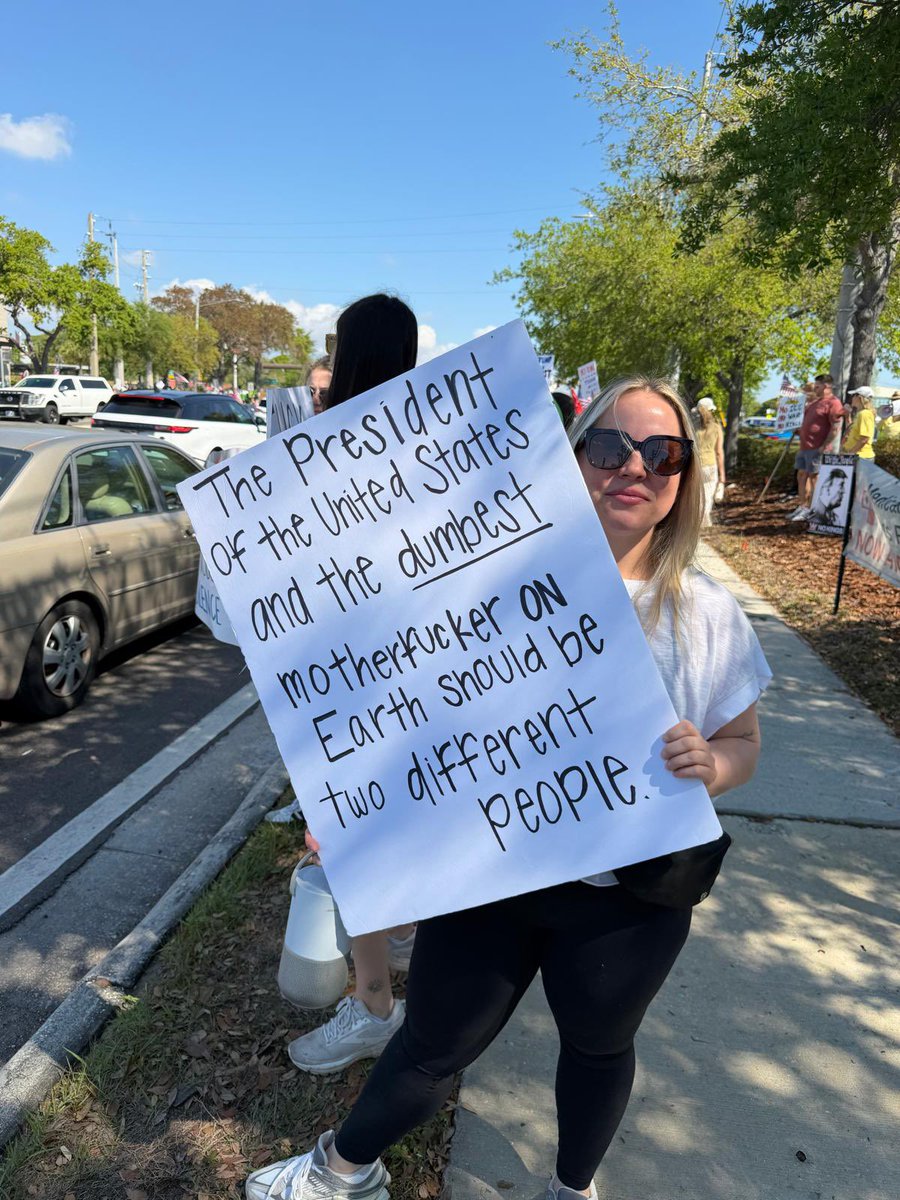 The President
of the United States
and the dumbest
motherfucker ON
Earth should be
two different
people.
ENCE
NOW